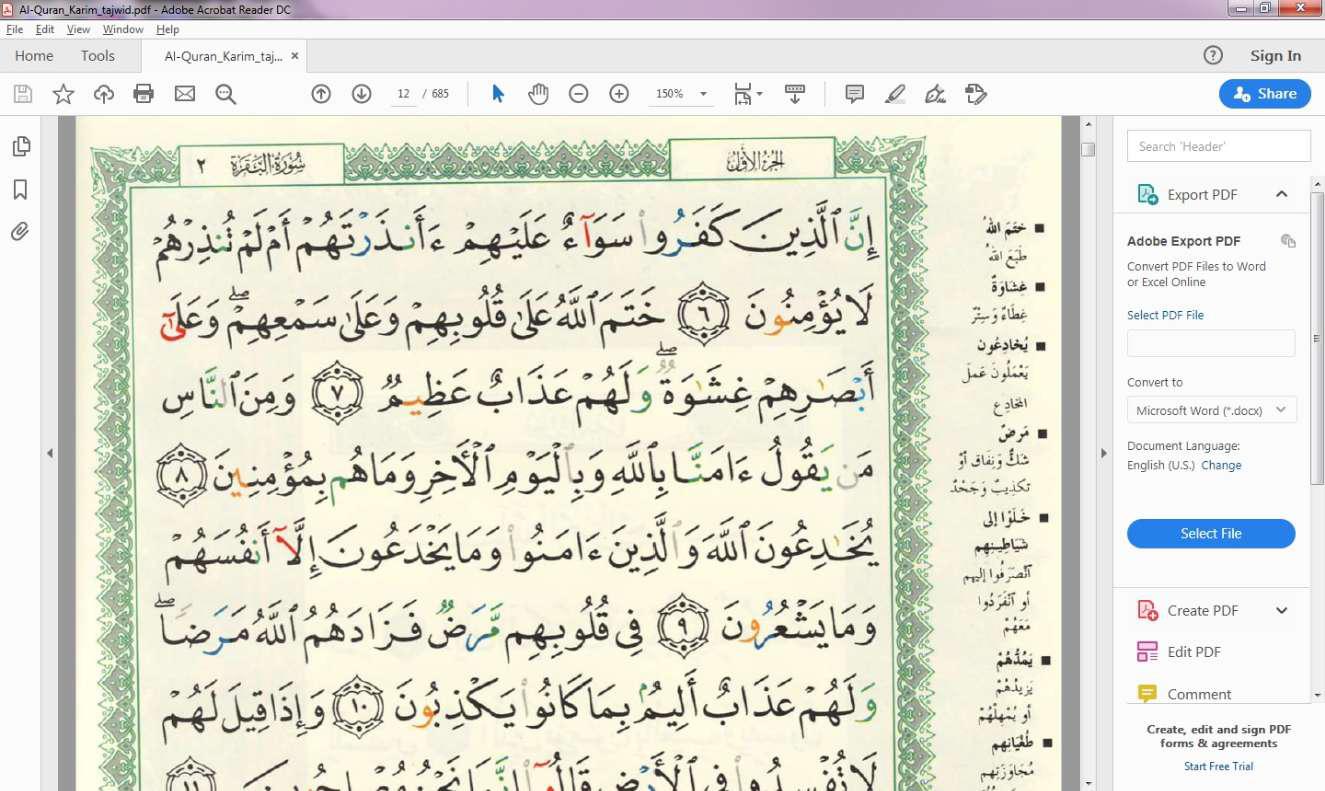 Al-Quran_Karim_tajwid.pdf - Adobe Acrobat Reader DC
File Edit View Window Help
Home Tools Al-Quran_Karim_taj... × Sign In
12 / 685 150% Share
سُورَةُ البَقَرَة ٢
الجُزءُ الأوّلُ
إِنَّ ٱلَّذِينَ كَفَرُوا۟ سَوَآءٌ عَلَيْهِمْ ءَأَنذَرْتَهُمْ أَمْ لَمْ تُنذِرْهُمْ
لَا يُؤْمِنُونَ ٦ خَتَمَ ٱللَّهُ عَلَىٰ قُلُوبِهِمْ وَعَلَىٰ سَمْعِهِمْ ۖ وَعَلَىٰٓ
أَبْصَٰرِهِمْ غِشَٰوَةٌ ۖ وَلَهُمْ عَذَابٌ عَظِيمٌ ٧ وَمِنَ ٱلنَّاسِ
مَن يَقُولُ ءَامَنَّا بِٱللَّهِ وَبِٱلْيَوْمِ ٱلْأَخِرِ وَمَا هُم بِمُؤْمِنِينَ ٨
يُخَٰدِعُونَ ٱللَّهَ وَٱلَّذِينَ ءَامَنُوا۟ وَمَا يَخْدَعُونَ إِلَّآ أَنفُسَهُمْ
وَمَا يَشْعُرُونَ ٩ فِى قُلُوبِهِم مَّرَضٌ فَزَادَهُمُ ٱللَّهُ مَرَضًا ۖ
وَلَهُمْ عَذَابٌ أَلِيمٌۢ بِمَا كَانُوا۟ يَكْذِبُونَ ١٠ وَإِذَا قِيلَ لَهُمْ
لَا تُفْسِدُوا۟ فِى ٱلْأَرْضِ قَالُوٓا۟ إِنَّمَا نَحْنُ مُصْلِحُونَ ١١
■ خَتَمَ اللهُ
طَبَعَ اللهُ
■ غِشَاوَةٌ
غِطَاءٌ وَسِتْرٌ
■ يُخَادِعُون
يَعْمَلُونَ عَمَلَ
المخَادِع
■ مَرَضٌ
شَكٌّ وَنِفَاق أوْ
تكذِيبٌ وَجَحْدٌ
■ خَلَوْا إلى
شيَاطِينِهِم
آنْصَرَفُوا إليهم
أو آنْفَرَدُوا
مَعَهُمْ
■ يَمُدُّهُمْ
يَزِيدُهُمْ
أو يُمْهِلُهُمْ
■ طُغْيَانِهِم
مُجَاوَزَتِهِم
Search 'Header'
Export PDF
Adobe Export PDF
Convert PDF Files to Word
or Excel Online
Select PDF File
Convert to
Microsoft Word (*.docx)
Document Language:
English (U.S.) Change
Select File
Create PDF
Edit PDF
Comment
Create, edit and sign PDF
forms & agreements
Start Free Trial